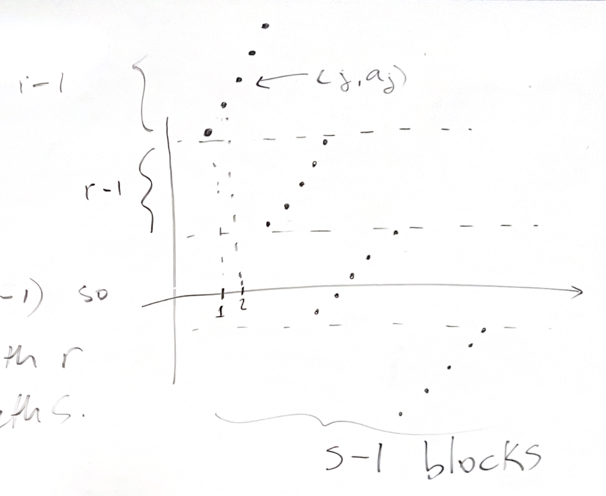 r-1
(j, aj)
r-1
-1) so
1 2
th r
eth S.
S-1 blocks